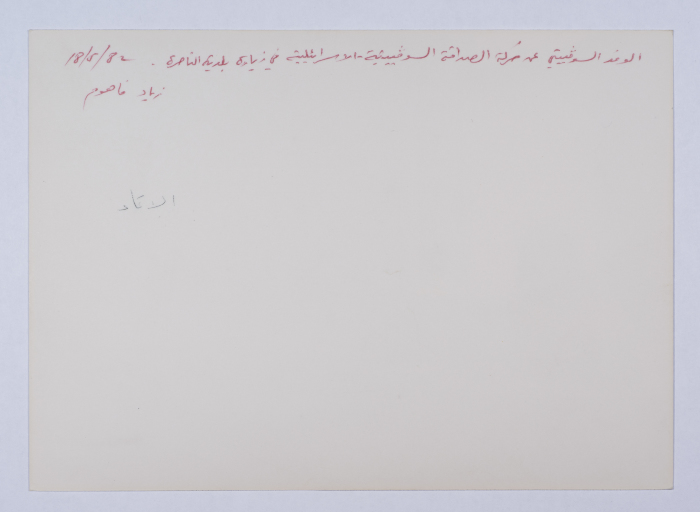 الوفد السوڤييتي عن حركة الصداقة السوڤييتية - الاسرائيلية في زيارة لبلدية الناصرة . 18/5/82
زياد فاهوم
الاتحاد